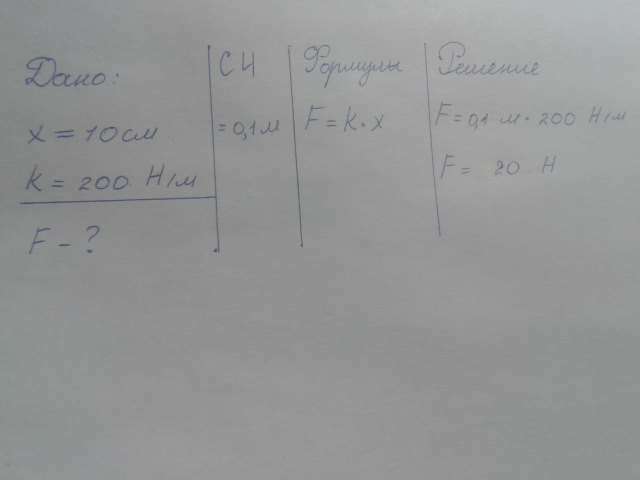 Дано:
x = 10 см
k = 200 Н/м
F - ?
СИ
= 0,1 м
Формулы
F = k · x
Решение
F = 0,1 м · 200 Н/м
F = 20 Н